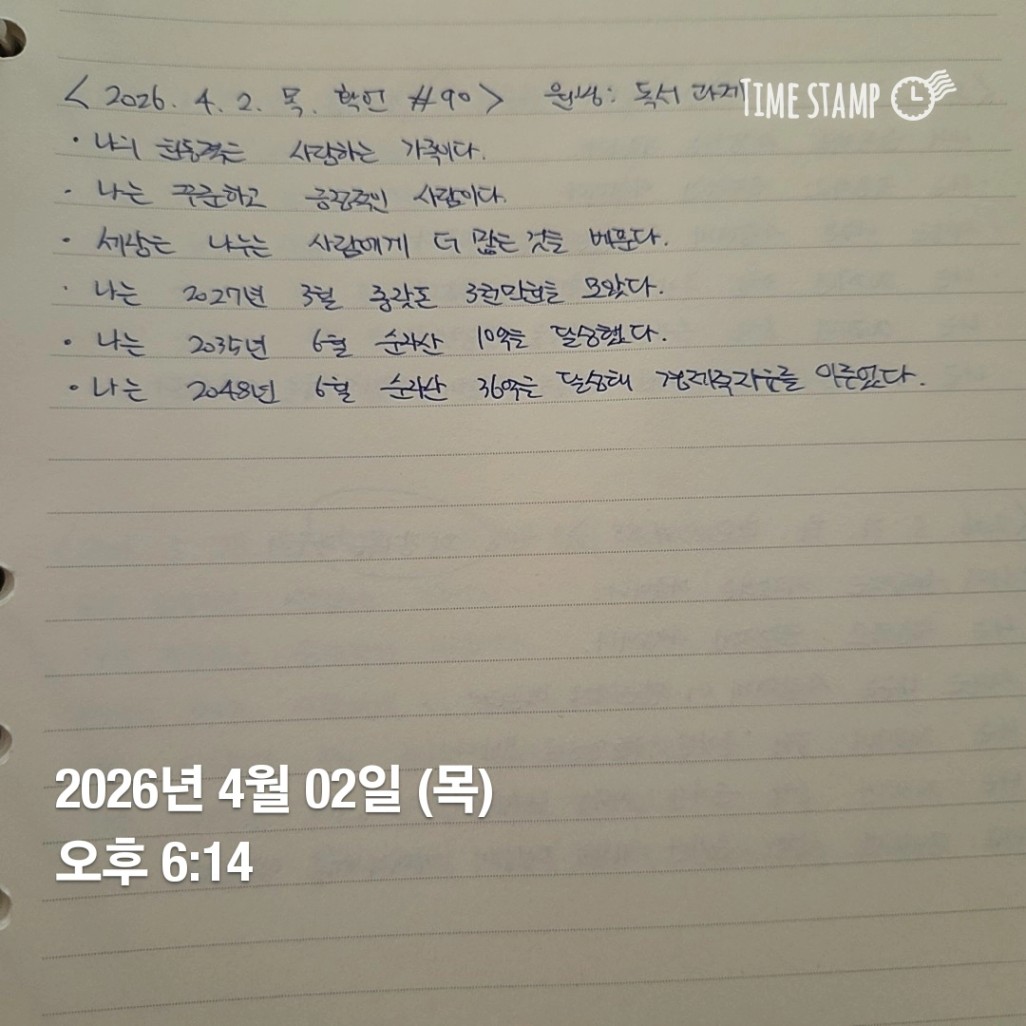 <2026. 4. 2. 목. 확언 #90> 원씽: 독서 과제
TIME STAMP
· 나의 원동력은 사랑하는 가족이다.
· 나는 꾸준하고 긍정적인 사람이다.
· 세상은 나누는 사람에게 더 많은 것을 베푼다.
· 나는 2027년 3월 종잣돈 3천만원을 모았다.
· 나는 2035년 6월 순자산 10억을 달성했다.
· 나는 2048년 6월 순자산 36억을 달성해 경제적자유를 이루었다.
2026년 4월 02일 (목)
오후 6:14